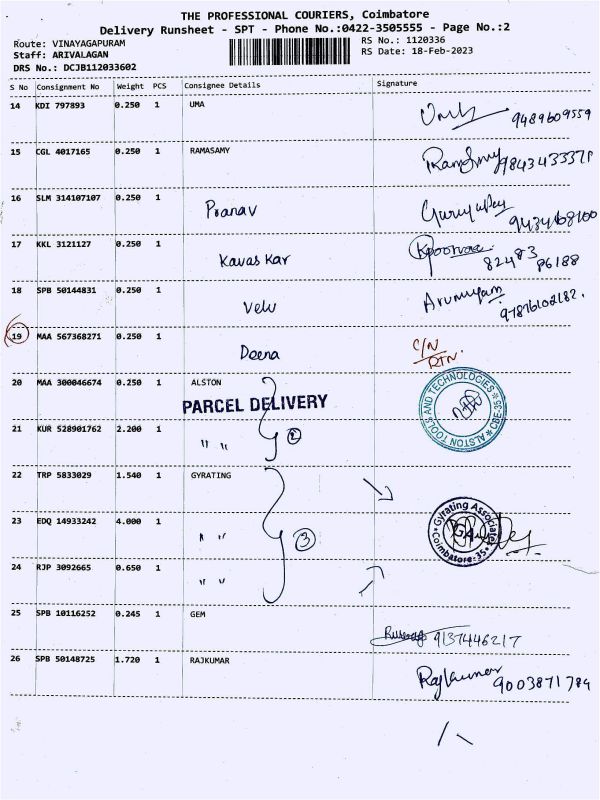 THE PROFESSIONAL COURIERS, Coimbatore
Delivery Runsheet - SPT - Phone No.:0422-3505555 - Page No.:2
Route: VINAYAGAPURAM
Staff: ARIVALAGAN
DRS No.: DCJB112033602
RS No.: 1120336
RS Date: 18-Feb-2023
S No Consignment No Weight PCS Consignee Details Signature
14 KDI 797893 0.250 1 UMA 9489609559
15 CGL 4017165 0.250 1 RAMASAMY 9843433371
16 SLM 314107107 0.250 1 Pranav
17 KKL 3121127 0.250 1 Kavas Kar 82483
86188
18 SPB 50144831 0.250 1 Velu Arumugam
19 MAA 567368271 0.250 1 Deena C/N
RTN.
20 MAA 300046674 0.250 1 ALSTON
PARCEL DELIVERY
ALSTON TOOLS AND TECHNOLOGIES * CBE-35 *
21 KUR 528901762 2.200 1 " " 2
22 TRP 5833029 1.540 1 GYRATING
23 EDQ 14933242 4.000 1 " " 3
Gyrating Associates
GA
Coimbatore-35
24 RJP 3092665 0.650 1 " "
25 SPB 10116252 0.245 1 GEM 9137446217
26 SPB 50148725 1.720 1 RAJKUMAR Rajkumar
9003871784